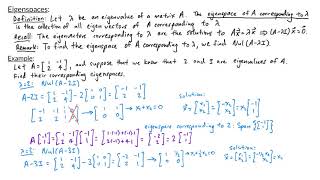 Eigenspaces:
Definition: Let λ be an eigenvalue of a matrix A. The eigenspace of A corresponding to λ
is the collection of all eigenvectors of A corresponding to λ.
Recall: The eigenvectors corresponding to λ are the solutions to Ax⃗=λx⃗ ⇒ (A-λI)x⃗=0⃗.
Remark: To find the eigenspace of A corresponding to λ, we find Nul(A-λI).
Example:
Let A=[1 -1; 2 4], and suppose that we know that 2 and 3 are eigenvalues of A.
Find their corresponding eigenspaces.
λ=2: Nul(A-2I)
A-2I=[1 -1; 2 4]-2[1 0; 0 1]=[-1 -1; 2 2]
→x₁+x₂=0
solution:
x⃗=[x₁; x₂]=[-x₂; x₂]=x₂[-1; 1]
eigenspace corresponding to 2: Span{[-1; 1]}
λ=3: Nul(A-3I)
A-3I=[1 -1; 2 4]-3[1 0; 0 1]=[-2 -1; 2 1]
solution: